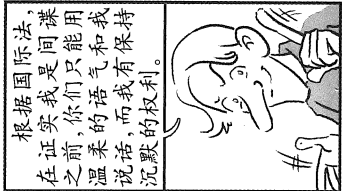 根据国际法，
在证实我是间谍
之前，你们只能用
温柔的语气和我
说话，而我有保持
沉默的权利。